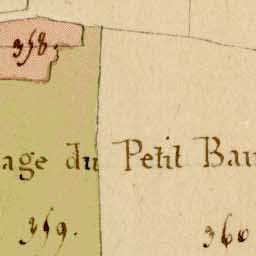 358.
age du Petit Bau
359.
360